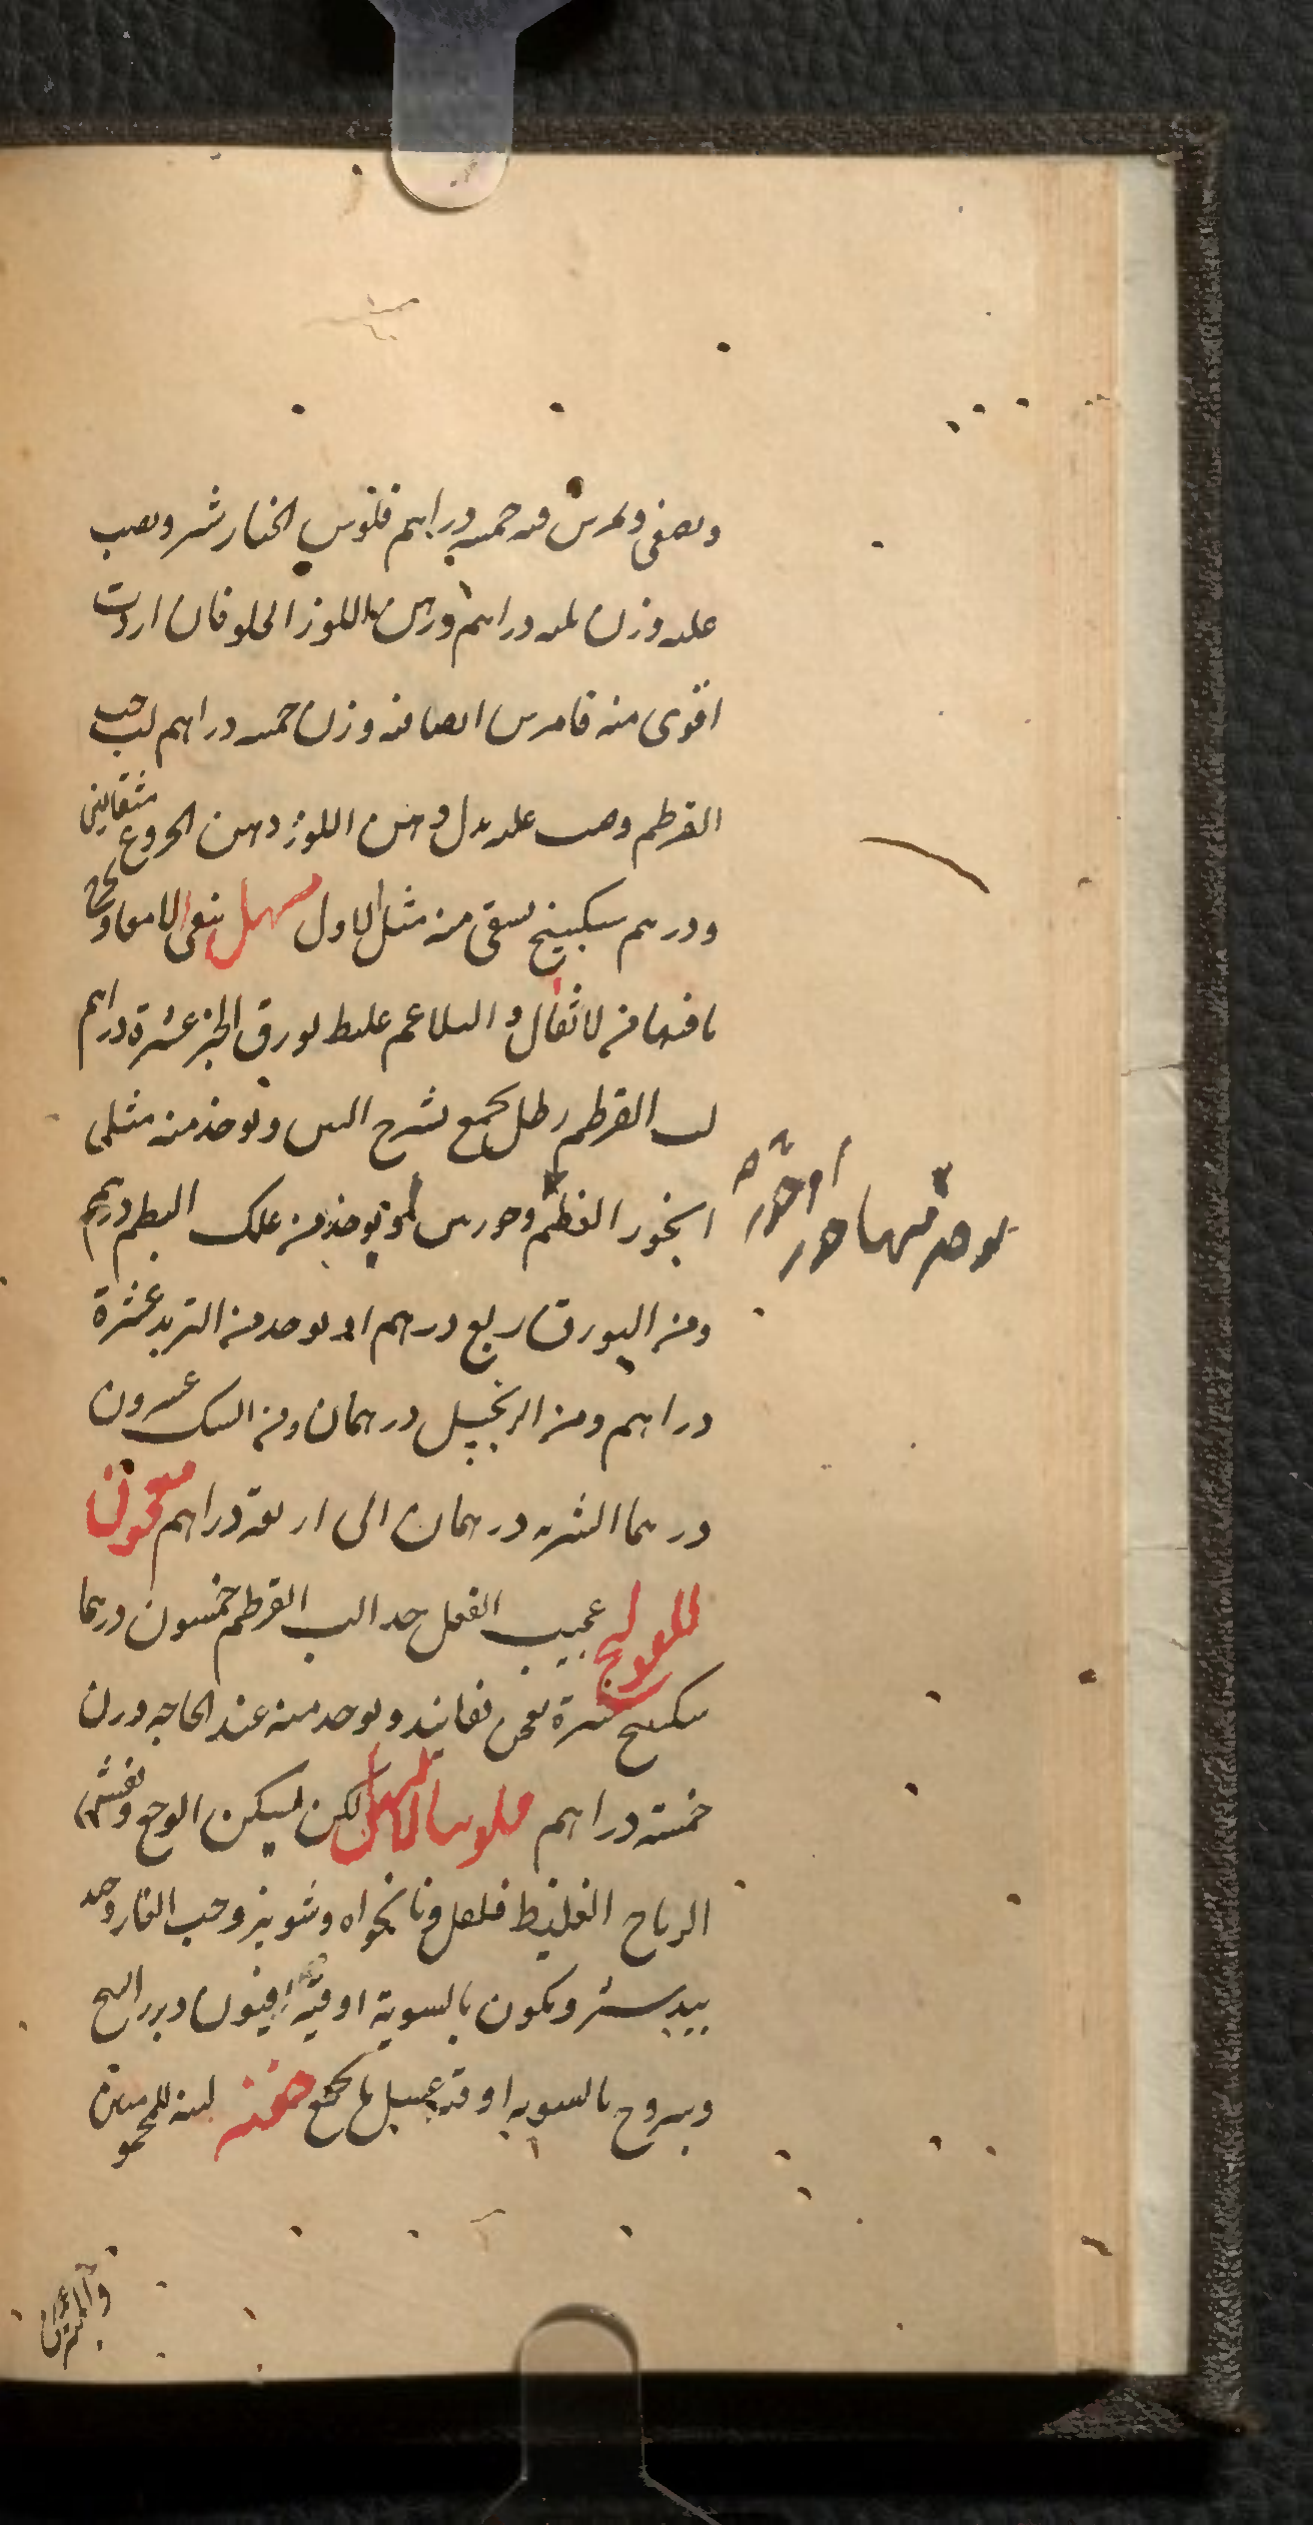 ويصفى ويمرس فيه خمسه دراهم فلوس الخيارشنبر ويصب
عليه وزن ثلثه دراهم دهن اللوز الحلو فان اردت
اقوى منه فامرس ايضا فيه وزن خمسه دراهم لب حب
القرطم وصب عليه بدل دهن اللوز دهن الخروع مثقالين
ودرهم سكبينج يسقى منه مثل الاول مسهل ينقى الامعاء
ما فيها من الاثفال والبلاغم غليظ بورق الخبز عشرة دراهم
لب القرطم رطل يجمع بشرح التين ويوخذ منه مثل
يوخذ من علك البطم درهم
يوخذ منها جوز او جوزه
ومن البورق ربع درهم اخر يوخذ من التربد عشرة
دراهم ومن الزنجبيل درهمان ومن السكر عشرون
درهما الشربه درهمان الى اربعة دراهم معجون
للقولنج عجيب الفعل جدا لب القرطم خمسون درهما
سكبينج عشرة يعجن بفانيد ويوخذ منه عند الحاجه وزن
خمسة دراهم فلونيا لا تسهل لكن ليسكن الوجع ويفش
الرياح الغليظ فلفل ونانخواه وشونيز وحب الغار وجند
بيدستر وكمون بالسوية اوقيه افيون وبزر البنج
ويبروح بالسويه اوقيه عسل ما يجمع حقنه لينه للمحمومين